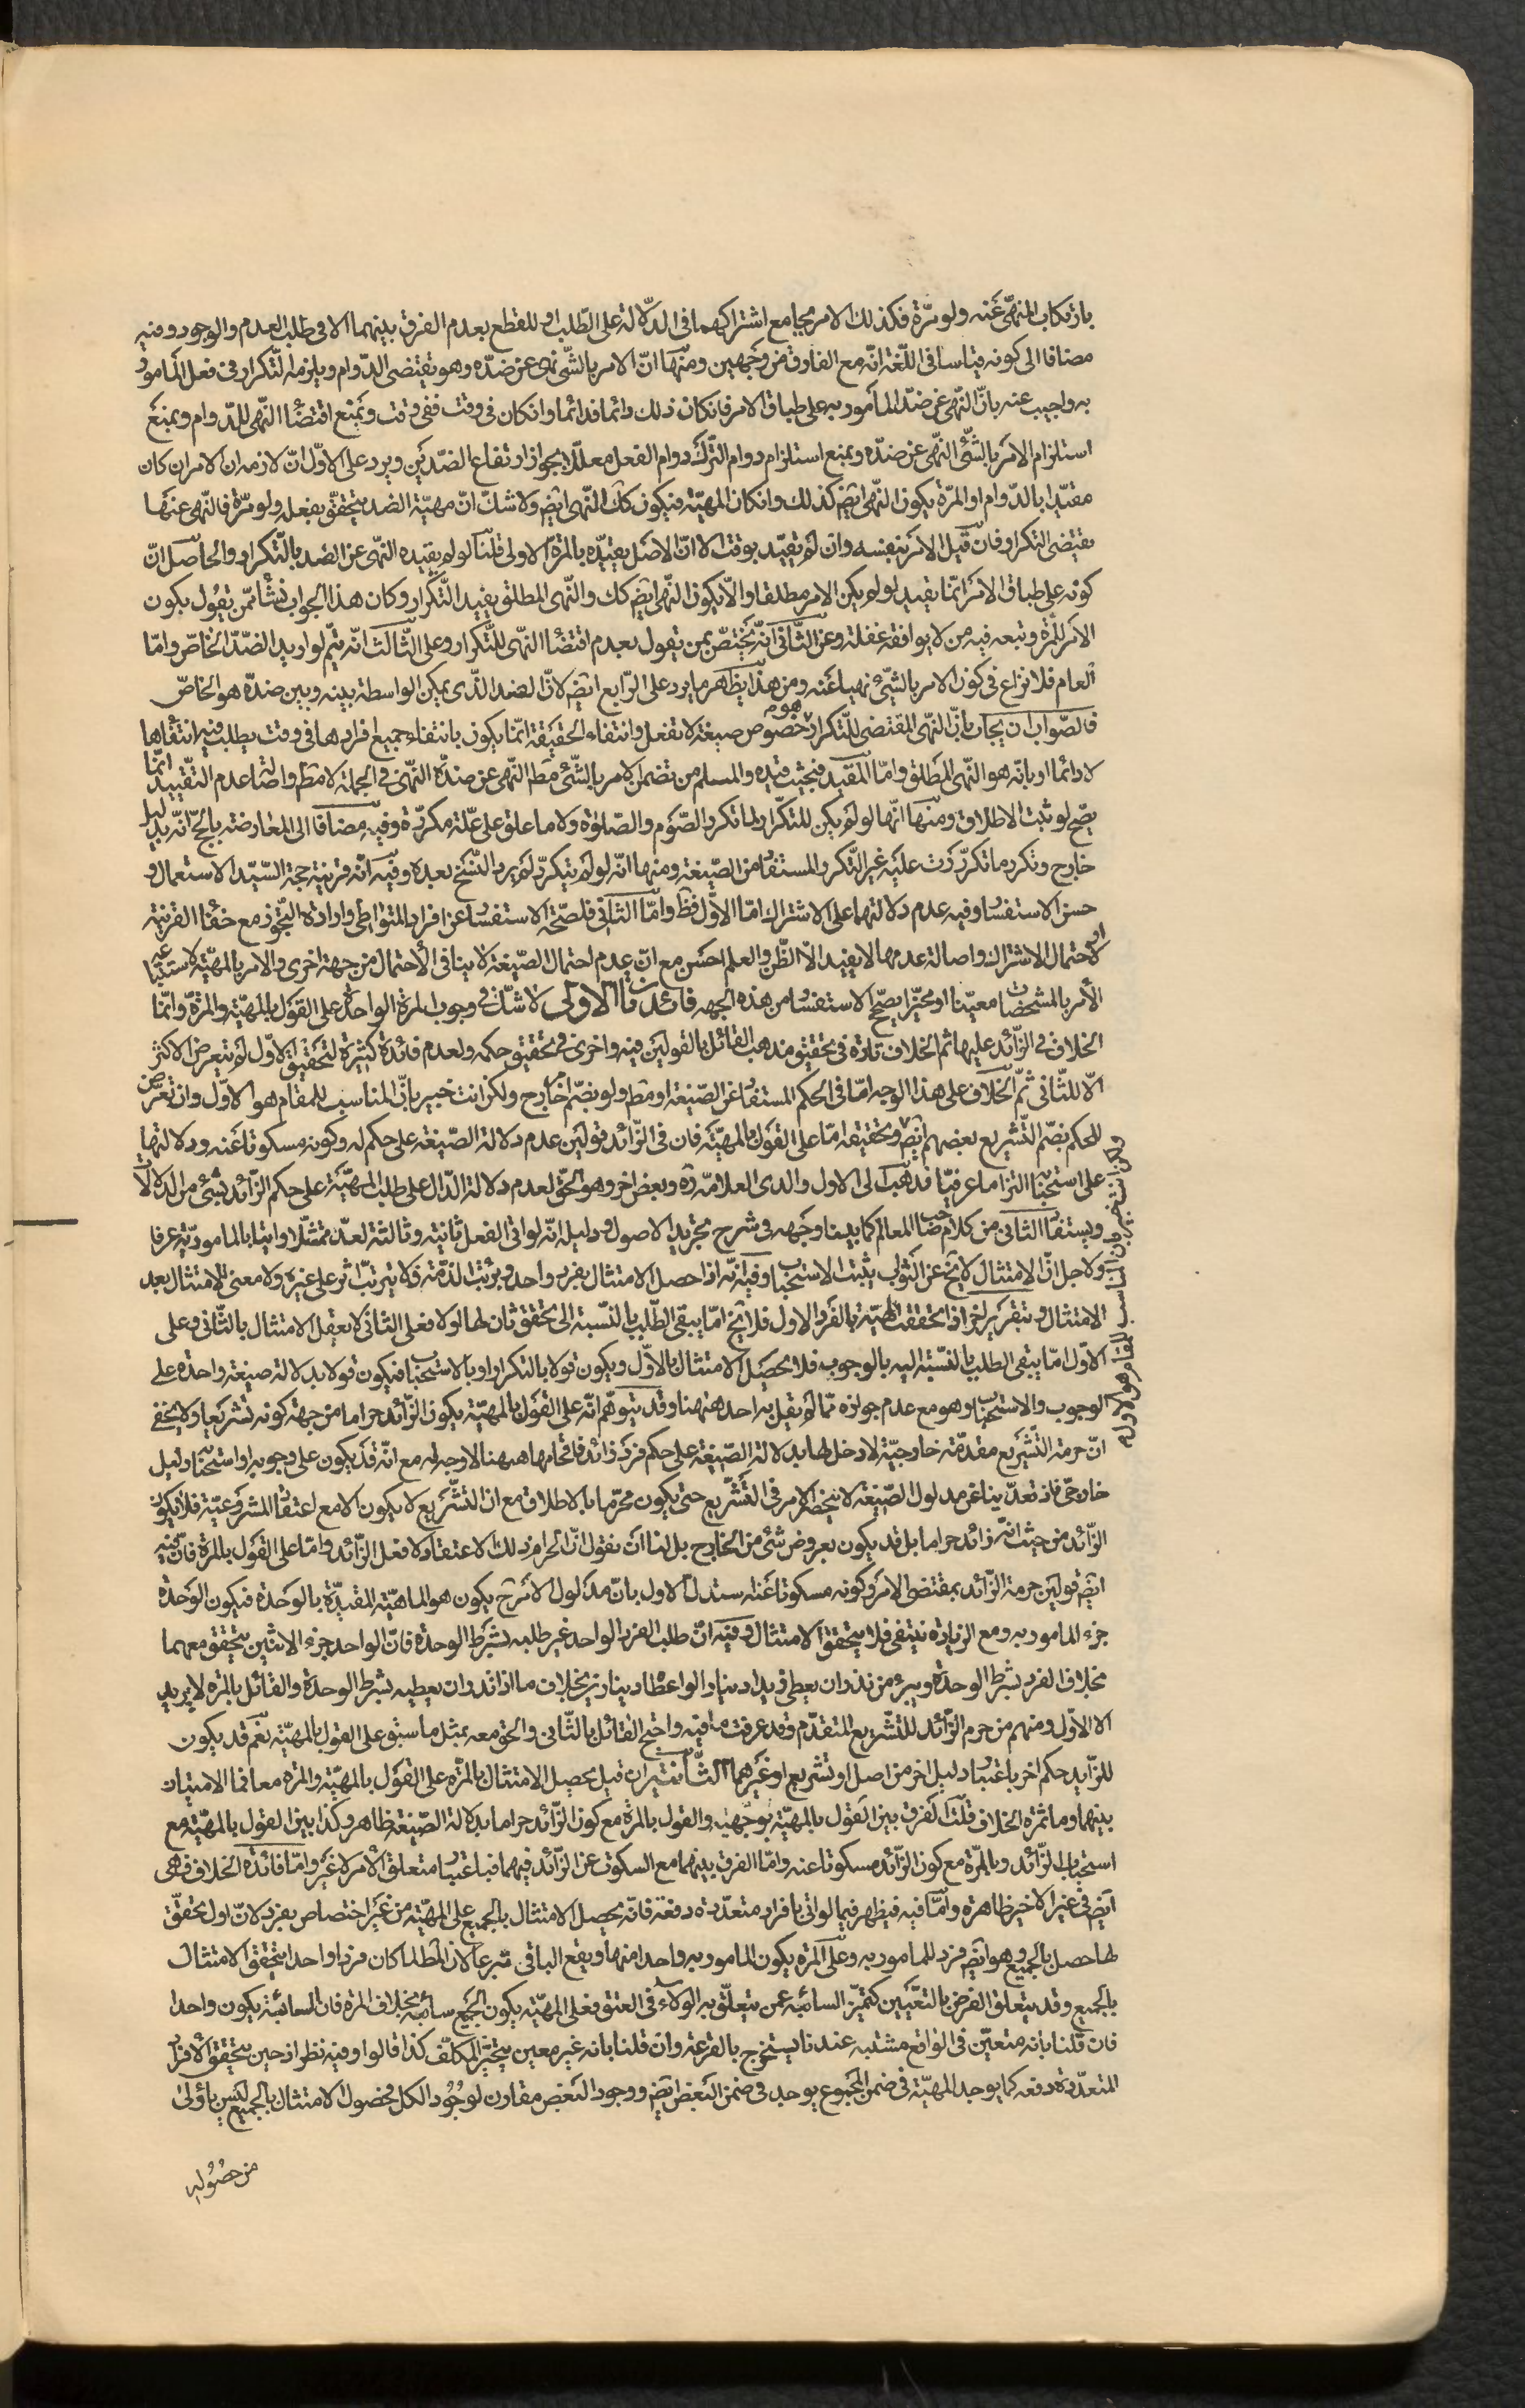 بارتكاب المنهى عنه ولو مرّة فكذلك الامر بجامع اشتراكهما فى الدّلالة على الطّلب او للقطع بعدم الفرق بينهما الا فى طلب العدم والوجود وفيه
مضافا الى كونه قياسا فى اللّغة انّه مع الفارق من وجهين ومنها انّ الامر بالشّئ نهى عن ضدّه وهو يقتضى الدّوام ويلزمه التّكرار فى فعل المأمور
به واجيب عنه بانّ النّهى عن ضدّ المأمور به على طباق الامر فانكان ذلك دائما فدائما وانكان فى وقت ففى وقت وبمنع اقتضاء النّهى للدّوام وبمنع
استلزام الامر بالشّئ النّهى عن ضدّه وبمنع استلزام دوام التّرك دوام الفعل معلّلا بجواز ارتفاع الضدّين ويرد على الاوّل انّ لازمه ان الامر ان كان
مقيّدا بالدّوام او المرّة يكون النّهى ايض كذلك وانكان المهيّة فيكون كك النّهى ايض ولا شكّ انّ مهيّة الضد يتحقق بفعله ولو مرّة فالنّهى عنها
يقتضى التكرار فان قيل الامر بنفسه وان لم تقيّد بوقت الا انّ الاصل يقيّده بالمرّة الاولى قلنا لو لم يقيده النّهى عن الضد بالتّكرار والحاصل انّ
كونه على طباق الامر انّما يفيد لو لم يكن الامر مطلقا والّا يكون النّهى ايض كك والنّهى المطلق يفيد التّكرار وكان هذا الجواب نشأ ممّن يقول بكون
الامر للمرّة وتبعه فيه من لا يوافقه غفلة وعن الثّانى انّه يختصّ بمن يقول بعدم اقتضاء النّهى للتّكرار وعلى الثّالث انّه يتمّ لو اريد الضّدّ الخاصّ وامّا
العام فلا نزاع فى كون الامر بالشّئ نهيا عنه ومن هذا يظهر ما يرد على الرّابع ايض لانّ الضد الذّى يمكن الواسطة بينه وبين ضدّه هو الخاصّ
فالصّواب ان يجاب بانّ النّهى المقتضى للتّكرار هو خصوص صيغة لا تفعل وانتفاء الحقيقة انّما يكون بانتفاء جميع افرادها فى وقت يطلب فيه انتفاءها
لا دائما او بانّه هو النّهى المطلق وامّا المقيّد فبحيث قيده والمسلم من تضمن الامر بالشّئ مط النّهى عن ضدّه النّهى فى الجملة لا مط واصالة عدم التّقييد انّما
يصّح لو ثبت الاطلاق ومنها انّها لو لم يكن للتكرار لما تكرر الصّوم والصّلوة ولا ما علق على علّة مكررة وفيه مضافا الى المعارضة بالحجّ انّه بدليل
خارج وتكرر ما تكرّر علية غير التّكرر المستفاد من الصّيغة ومنها انّه لو لم يتكرّر لم يرد النّسخ بعده وفيه انّه قرينة حجة السّيد الاستعمال و
حسن الاستفسار وفيه عدم دلالتهما على الاشتراك امّا الاوّل فظ وامّا الثّانى فلصّحة الاستفسار عن افراد المتواطى وارادة التّجوز مع خفاء القرينة
او لاحتمال الاشتراك واصالة عدمها لا يفيد الّا الظّن والعلم احسن مع انّ عدم احتمال الصّيغة لا ينافى الاحتمال من جهة اخرى والامر بالمهيّة لاستتباعه
الأمر بالمشخصات معيّنا او مخيّرا يصحّح الاستفسار من هذه الجهة فائدتان الاولى لا شكّ فى وجوب المرّة الواحدة على القول بالمهيّة والمرّة وانّما
الخلاف فى الزّائد عليها ثم الخلاف تارة فى تحقيق مذهب القائل بالقولين فيه واخرى فى تحقيق حكمه ولعدم فائدة كثيرة لتحقيق الاوّل لم يتعرض الاكثر
الّا للثّانى ثمّ الخلاف على هذا الوجه امّا فى الحكم المستفاد عن الصّيغة او مط ولو بضمّ خارج ولكن انت خبير بانّ المناسب للمقام هو الاوّل وان تعرّض
للحكم بضمّ التّشريع بعضهم ايض وتحقيقه امّا على القول بالمهيّة فان فى الزّائد قولين عدم دلالة الصّيغة على حكم له وكونه مسكوتا عنه ودلالتها
على استحبابه التزاما عرفيّا فذهب الى الاول والدى العلامة ره وبعض اخر وهو الحقّ لعدم دلالة الدّال على طلب المهيّة على حكم الزّائد بشئ من الدلالات
ويستفاد الثانى من كلام صاحب المعالم كما بيناه وجهه فى شرح تجريد الاصول ودليله انّه لو اتى الفعل ثانية وثالثة لعدّ متمثّلا واتيا بالمامور به عرفا
ولاجل انّ الامتثال لا يخ عن الثواب يثبت الاستحباب وفيه انّه اذا حصل الامتثال بفرد واحد وبرئت الذّمة فلا يترتّب اثر على غيره ولا معنى للامتثال بعد
الامتثال وبتقرير اخر اذا تحققت المهيّة بالفرد الاول فلا يخ امّا يبقى الطّلب بالنسّبة الى تحقق ثان لها او لا فعلى الثانى لا يعقل الامتثال بالثّانى وعلى
الاوّل امّا يبقى الطلب بالنسّبة اليه بالوجوب فلا يحصل الامتثال بالاوّل ويكون قولا بالتكرار او بالاستحباب فيكون قولا بدلالة صيغة واحدة على
الوجوب والاستحباب وهو مع عدم جوازه ممّا لم يقل به احد ههنا وقد يتوهّم انّه على القول بالمهيّة يكون الزّائد حراما من جهة كونه تشريعا ولا يخفى
انّ حرمة التّشريع مقدّمة خارجيّة لا دخل لها بدلالة الصّيغة على حكم فرد زائد فاقحامها ههنا لا وجه له مع انّه قد يكون على وجوبه او استحبابه دليل
خارجى فاذ تعدّينا عن مدلول الصّيغة لا ينحصر الامر فى التّشريع حتى يكون محرّما بالاطلاق مع ان التّشريع لا يكون الا مع اعتقاد المشروعيّة فلا يكون
الزّائد من حيث انّه زائد حراما بل قد يكون بعروض شئ من الخارج بل لنا ان نقول انّ الحرام ذلك الاعتقاد لا فعل الزّائد وامّا على القول بالمرّة فان فيه
ايض قولين حرمة الزّائد بمقتضى الامر وكونه مسكوتا عنه ستدل الاول بانّ مدلول الامر ح يكون هو الماهيّة المقيّدة بالوحدة فيكون الوحدة
جزء المامور به ومع الزيادة ينتفى فلا يتحقق الامتثال وفيه انّ طلب الفرد الواحد غير طلبه بشرط الوحدة فانّ الواحد جزء الاثنين يتحقق معهما
بخلاف الفرد بشرط الوحدة ويبرء من نذر ان يعطى زيدا دينارا لو اعطاه دينارين بخلاف ما اذا نذر ان يعطيه بشرط الوحدة والقائل بالمرّة لا يريد
الا الاوّل ومنهم من حرم الزّائد للتّشريع المتقدّم وقد عرفت ما فيه واحتج القائل بالثّانى والحق معه بمثل ما سبق على القول بالمهيّة نعم قد يكون
للزّايد حكم اخر باعتبار دليل اخر من اصل او تشريع او غيرهما الثّانية ان قيل يحصل الامتثال بالمرّة على القول بالمهيّة والمرّة معا فما الامتيان
بينهما وما ثمرة الخلاف قلت الفرق بين القول بالمهيّة بوجهيه والقول بالمرّة مع كون الزّائد حراما بدلالة الصّيغة ظاهر وكذا بين القول بالمهيّة مع
استحباب الزّائد وبالمرّة مع كون الزّائد مسكوتا عنه وامّا الفرق بينهما مع السكوت عن الزّائد فيهما فباعتبار متعلق الأمر لا غير وامّا فائدة الخلاف فهى
ايض فى غير الاخير ظاهرة وامّا فيه فيظهر فيما لو اتى بافراد متعدّدة دفعة فانّه يحصل الامتثال بالجميع على المهيّة من غير اختصاص بفرد لانّ اول تحقّق
لها حصل بالجميع وهو ايض فرد للمامور به وعلى المرّة يكون المامور به واحدا منها ويقع الباقى تبرعا لان المطلب كان فردا واحدا يتحقق الامتثال
بالجميع وقد يتعلق الغرض بالتّعيين كتميّز السائبة عمن يتعلّق به الولاء فى العتق فعلى المهيّة يكون الجميع سائبة بخلاف المرّة فان السائبة يكون واحدا
فان قلنا بانه متعيّن فى الواقع مشتبه عندنا يستخرج بالقرعة وان قلنا بانه غير معين يتخيّر المكلّف كذا قالوا وفيه نظر اذ حين يتحقق الافراد
المتعدّدة دفعة كما يوجد المهيّة فى ضمن المجموع يوجد فى ضمن البعض ايض ووجود البعض مقارن لوجود الكل فحصول الامتثال بالجميع ليس باولى
من حصوله